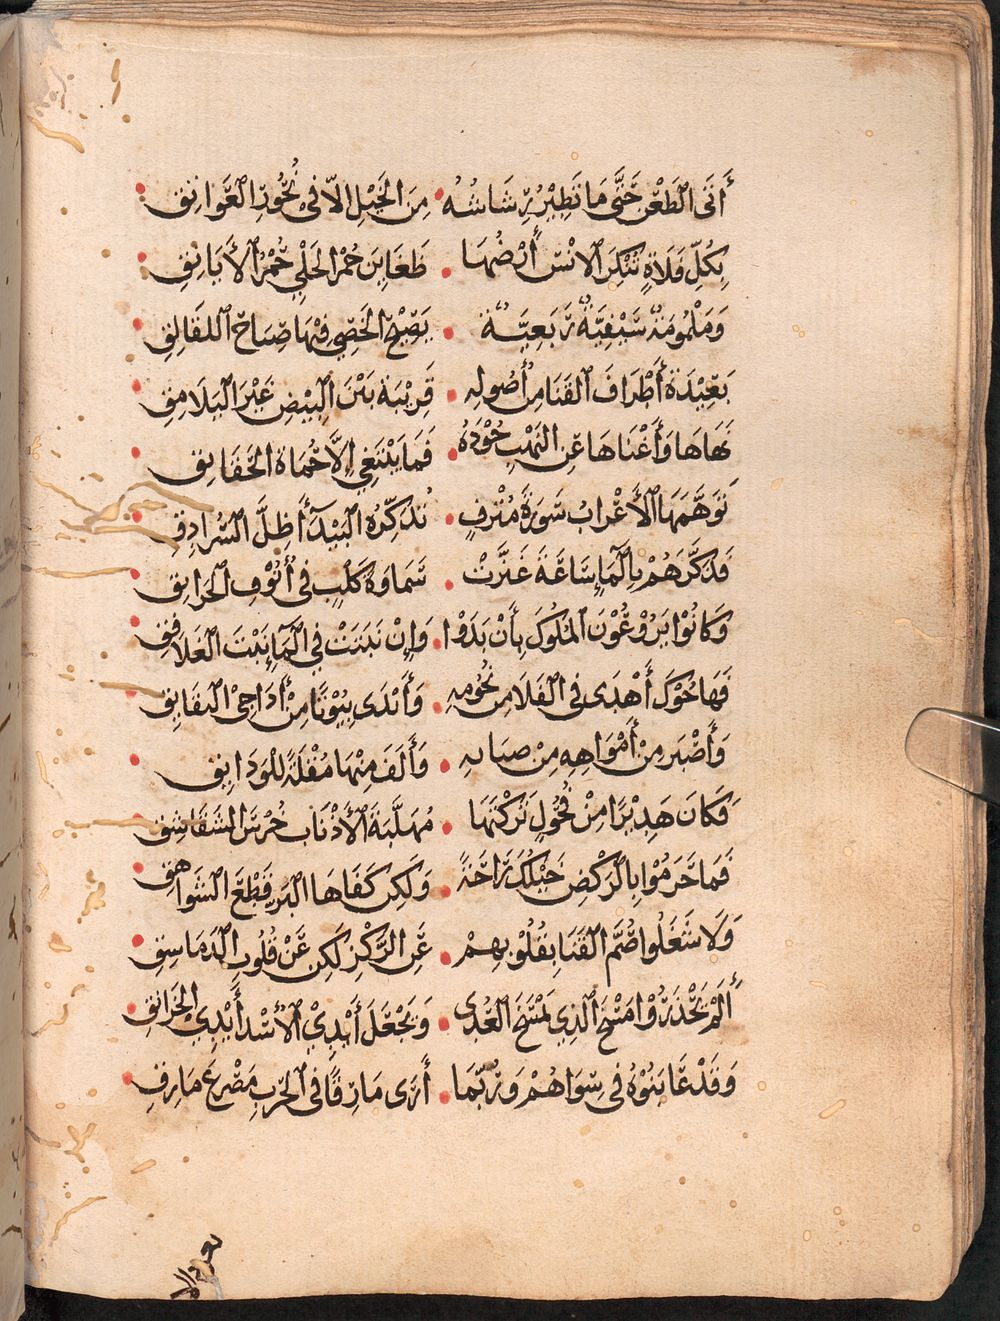 أَتَى الظَّعْنَ حَتَّى مَا تَطِيْرُ رَشَاشُهُ مِنَ الخَيْلِ الاّ فِي نُحُوْرِ العَوَاتِقِ
بِكُلِّ فَلَاةٍ تُنْكِرُ الْانْسَ أَرْضُهَا ظَعَايِنُ حُمْرُ الحَلْيِ حُمْرُ الأَيَانِقِ
وَمَلْمُومَةٌ سَيْفِيَّةٌ رَبَعِيَّةٌ يَصِيْحُ الحَصَى فِيْهَا صِيَاحَ اللَّقَالِقِ
بَعِيْدَةُ أَطْرَافِ القَنَا مِنْ أُصُولِهِ قَرِيْبَةُ بَيْنَ البِيْضِ غُبْرَ اليَلَامِقِ
نَهَاهَا وَأَغْنَاهَا عَنِ النَّهْبِ جُوْدُهُ فَمَا يَبْتَغِي إِلَّا حُمَاةَ الحَقَائِقِ
تَوَهَّمَهَا الأَعْرَابُ سَوْرَةَ مُتْرَفٍ تُذَكِّرُهُ البَيْدَآءُ ظِلَّ السُّرَادِقِ
فَذَكَّرَهُمْ بِالْمَآءِ سَاعَةَ غَبَّرَتْ سَمَاوَةُ كَلْبٍ فِي أُنُوْفِ الحَزَايِقِ
وَكَانُوْا يَرُوْعُوْنَ المُلُوْكَ بِأَنْ بَدَوْا وَإِنْ نَبَتَتْ فِي المَآءِ نَبْتَ الغَلَافِقِ
فَهَاجُوْكَ أَهْدَى فِي الفَلَا مِنْ نُجُومِهِ وَأَنْدَى بُيُوْتًا مِنْ أَدَاحِيْ النَقَانِقِ
وَأَصْبَرَ مِنْ أَمْوَاهِهِ مِنْ ضِبَابِهِ وَأَلَفَ مِنْهَا مُقْلَةً لِلوَدَايِقِ
وَكَانَ هَدِيْرًا مِنْ فُحُولٍ تَرَكْتَهَا مُهَلَّبَةَ الأَذْنَابِ خُرْسَ الشَّقَاشِقِ
فَمَا حَرَمُوْا بِالرَّكْضِ خَيْلَكَ رَاحَةً وَلَكِنْ كَفَاهَا البَرُّ قَطْعَ الشَّوَاهِقِ
وَلَا شَغَلُوا صُمَّ القَنَا بِقُلُوْبِهِمْ عَنِ الرَّكْزِ لَكِنْ عَنْ قُلُوبِ الدَّمَاسِقِ
أَلَمْ يَحْذَرُوْا مَسْخَ الَّذِي يَمْسَخُ العُدَى وَيَجْعَلُ أَيْدِيْ الأُسْدِ أَيْدِي الخَرَانِقِ
وَقَدْ عَايَنُوْهُ فِي سِوَاهُمْ وَرُبَّمَا أَرَى مَارِقًا فِي الحَرْبِ مَصْرَعَ مَارِقِ
تعود الا